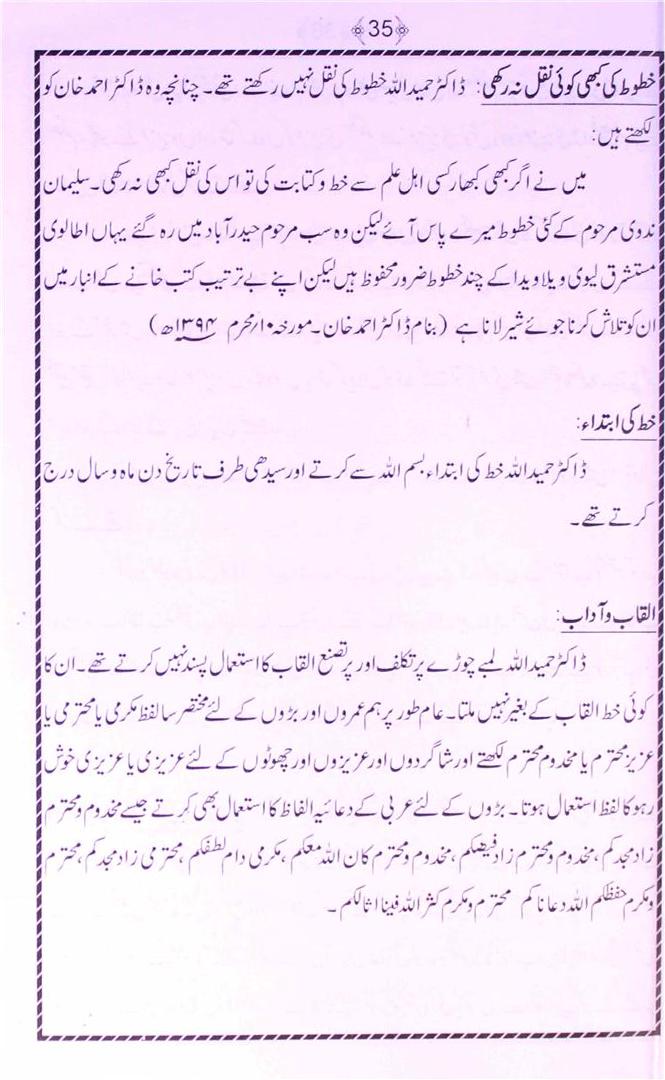 ﴿35﴾
خطوط کی کبھی کوئی نقل نہ رکھی: ڈاکٹر حمید اللہ خطوط کی نقل نہیں رکھتے تھے۔ چنانچہ وہ ڈاکٹر احمد خان کو
لکھتے ہیں:
میں نے اگر کبھی کبھار کسی اہل علم سے خط و کتابت کی تو اس کی نقل کبھی نہ رکھی۔ سلیمان
ندوی مرحوم کے کئی خطوط میرے پاس آئے لیکن وہ سب مرحوم حیدرآباد میں رہ گئے یہاں اطالوی
مستشرق لیوی ویلا ویدا کے چند خطوط ضرور محفوظ ہیں لیکن اپنے بے ترتیب کتب خانے کے انبار میں
ان کو تلاش کرنا جوئے شیر لانا ہے (بنام ڈاکٹر احمد خان۔ مورخہ ۱۰/محرم ۱۳۹۴ھ)
خط کی ابتداء:
ڈاکٹر حمید اللہ خط کی ابتداء بسم اللہ سے کرتے اور سیدھی طرف تاریخ دن ماہ و سال درج
کرتے تھے۔
القاب و آداب:
ڈاکٹر حمید اللہ لمبے چوڑے پر تکلف اور پر تصنع القاب کا استعمال پسند نہیں کرتے تھے۔ ان کا
کوئی خط القاب کے بغیر نہیں ملتا۔ عام طور پر ہم عمروں اور بڑوں کے لئے مختصر سا لفظ مکرمی یا محترمی یا
عزیز محترم یا مخدوم محترم لکھتے اور شاگردوں اور عزیزوں اور چھوٹوں کے لئے عزیزی یا عزیزی خوش
رہو کا لفظ استعمال ہوتا۔ بڑوں کے لئے عربی کے دعائیہ الفاظ کا استعمال بھی کرتے جیسے مخدوم و محترم
زاد مجدکم، مخدوم و محترم زاد فیضکم، مخدوم و محترم کان اللہ معکم، مکرمی دام لطفکم، محترمی زاد مجدکم، محترم
و مکرم حفظکم اللہ و عافاکم محترم و مکرم کثر اللہ فینا امثالکم۔